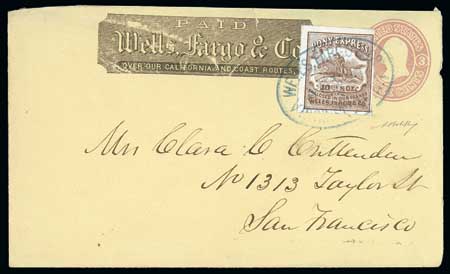 PAID
Wells, Fargo & Co
OVER OUR CALIFORNIA AND COAST ROUTES,
PONY EXPRESS
WELLS FARGO & CO.
Mrs Clara C Crittenden
No 1313 Taylor St
San Francisco